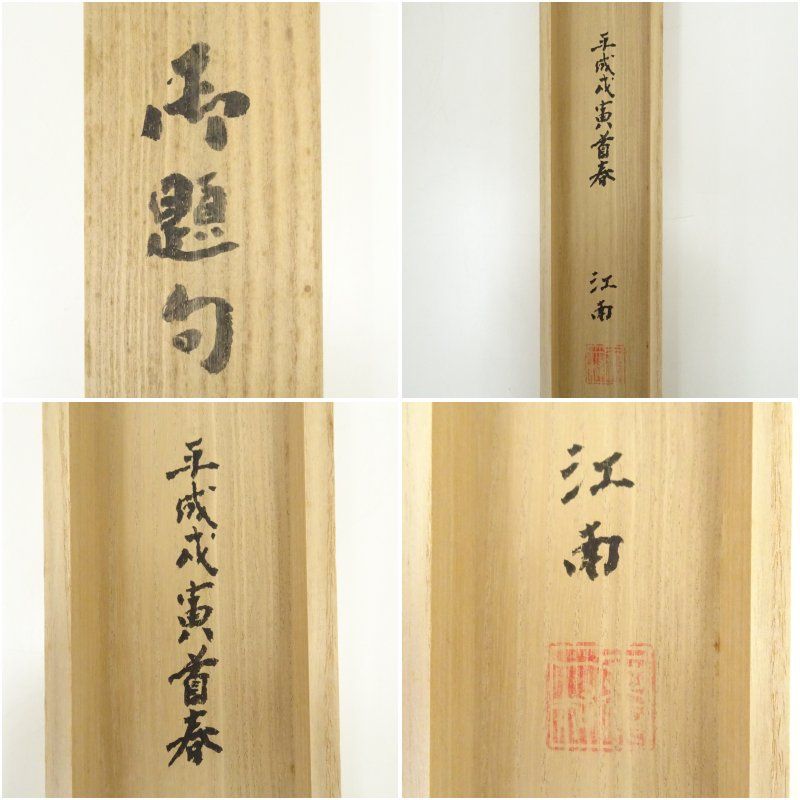 御題句
平成戊寅首春
江南
平成戊寅首春
江南